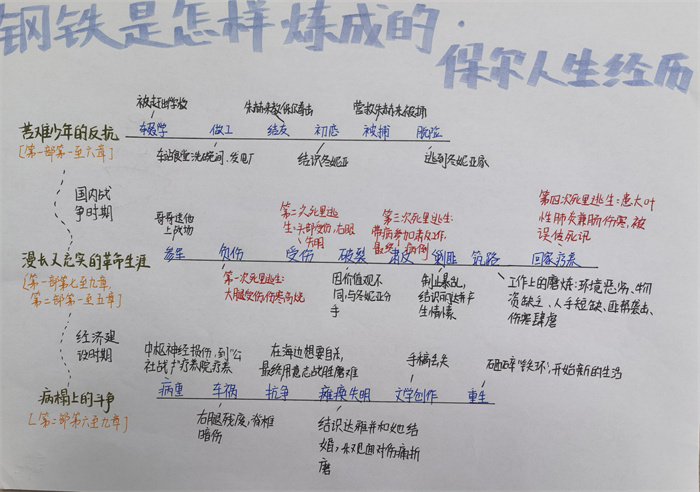 钢铁是怎样炼成的·
保尔人生经历
被赶出学校
朱赫来教保尔拳击
营救朱赫来被捕
苦难少年的反抗
辍学
做工
结友
初恋
被捕
脱险
[第一部第一至六章]
车站食堂洗碗间、发电厂
结识冬妮亚
逃到冬妮亚家
国内战
争时期
哥哥送他
上战场
第二次死里逃
生:头部受伤,右眼
失明
第三次死里逃生:
带病参加肃反工作,
最终
病倒
第四次死里逃生:患大叶
性肺炎兼肠伤寒,被
误传死讯
漫长又充实的革命生涯
参军
负伤
受伤
破裂
肃反
剿匪
筑路
回家疗养
[第一部第七至九章,
第二部第一至五章]
第一次死里逃生:
大腿受伤,伤寒高烧
因价值观不
同,与冬妮亚分
手
制止暴乱,
结识丽达并产
生情愫
工作上的磨炼:环境恶劣、物
资缺乏、人手短缺、匪帮袭击、
伤寒肆虐
经济建
设时期
中枢神经损伤,到“公
社战士”疗养院疗养
在海边想要自杀,
最终用意志战胜磨难
手稿丢失
砸碎“铁环”,开始新的生活
病榻上的斗争
病重
车祸
抗争
瘫痪失明
文学创作
重生
[第二部第六至九章]
右腿残废,脊椎
暗伤
结识达雅并和她结
婚,乐观面对伤痛折
磨